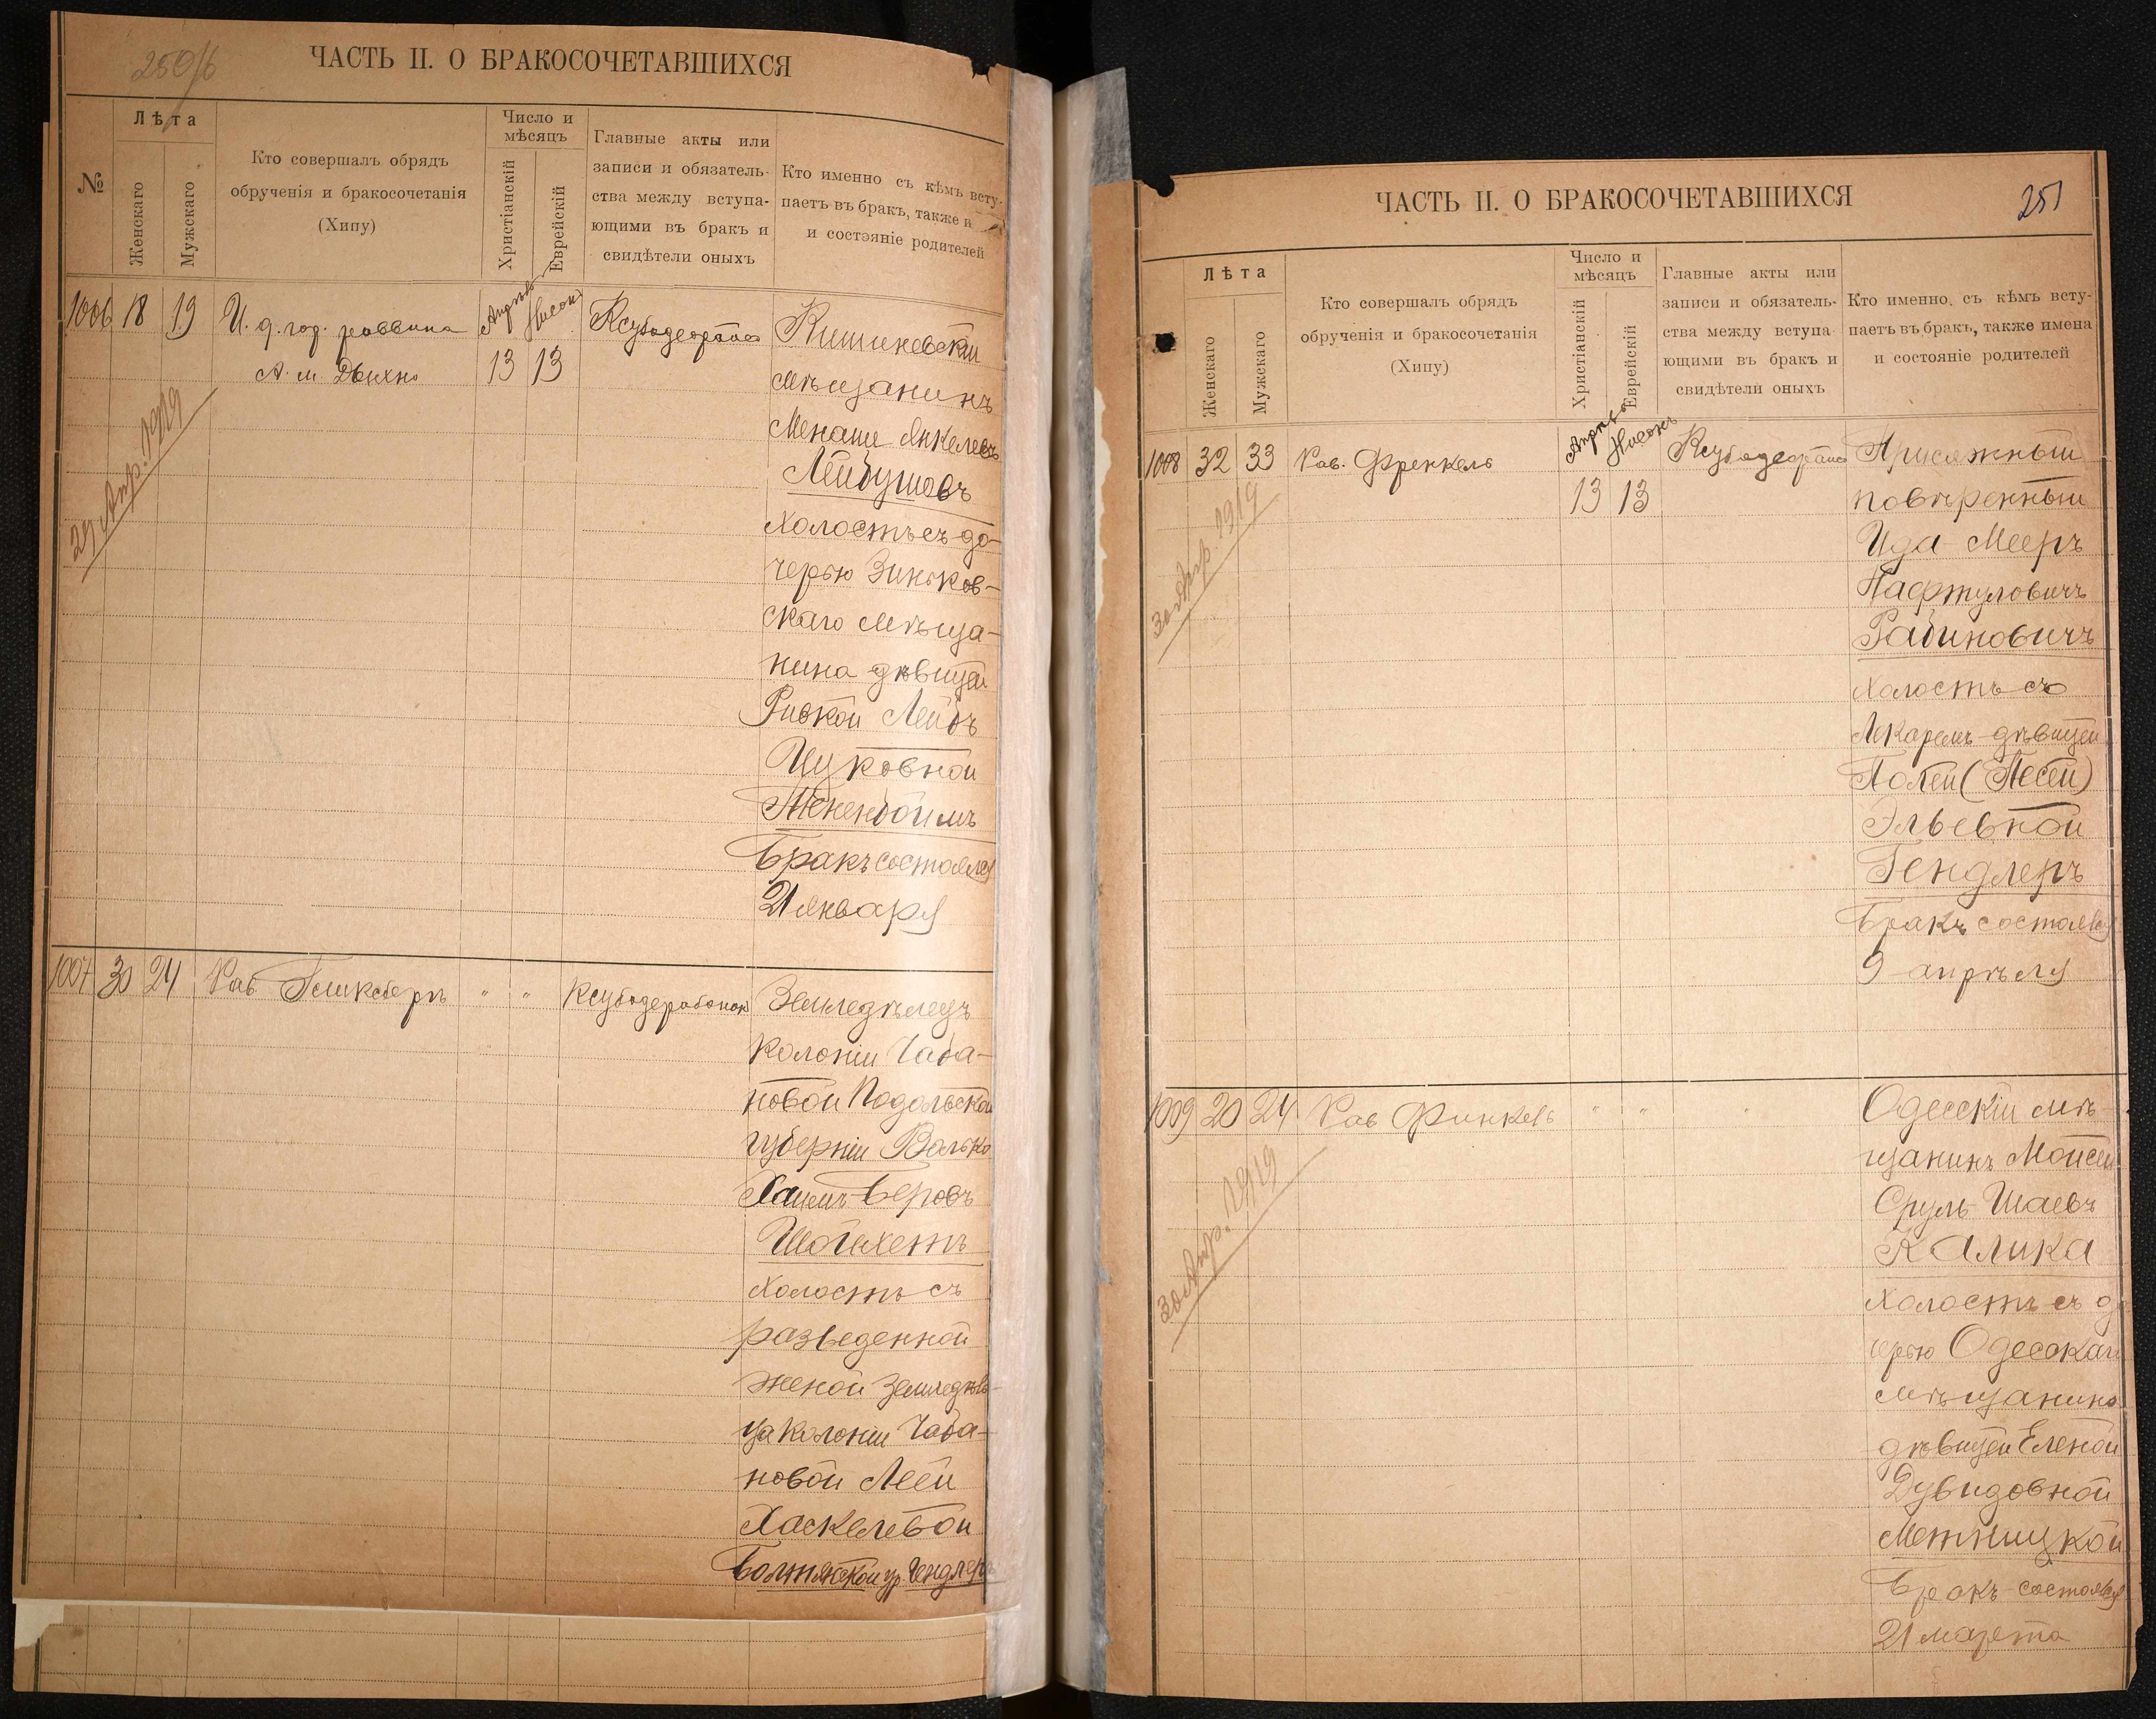 250/б
ЧАСТЬ II. О БРАКОСОЧЕТАВШИХСЯ
№
Лѣта
Женскаго
Мужскаго
Кто совершалъ обрядъ
обрученія и бракосочетанія
(Хипу)
Число и
мѣсяцъ
Христіанскій
Еврейскій
Главные акты или
записи и обязатель-
ства между вступа-
ющими въ бракъ и
свидѣтели оныхъ
Кто именно съ кѣмъ всту-
паетъ въ бракъ, также и
и состояніе родителей
1006 18 19 И. д. гор. раввина
А. м. Дыхно
Апрѣль Нисонъ
13 13
Кишиневскій
мѣщанинъ
Менаше Янкелевъ
Лейбушовъ
холостъ съ до-
черью Зиньков-
скаго мѣща-
нина дѣвицей
Ривкой Лейбъ
Ицковной
Тененбоймъ
Бракъ состоялся
21 января
29 Апр. 1919
1007 30 24 Рав " "
Земледѣлецъ
колоніи Чаба-
новой Подольской
губерніи Волько
Хаимъ Беровъ
Шойхетъ
холостъ съ
разведенной
женой земледѣль-
ца колоніи Чаба-
новой Леей
Хаскелевой
Болтянской ур. Гендлеръ
ЧАСТЬ II. О БРАКОСОЧЕТАВШИХСЯ
251
Лѣта
Женскаго
Мужскаго
Кто совершалъ обрядъ
обрученія и бракосочетанія
(Хипу)
Число и
мѣсяцъ
Христіанскій
Еврейскій
Главные акты или
записи и обязатель-
ства между вступа
ющими въ бракъ и
свидѣтели оныхъ
Кто именно, съ кѣмъ всту-
паетъ въ бракъ, также имена
и состояніе родителей
1008 32 33 Рав. Френкель
Апрѣль Нисонъ
13 13
Присяжный
повѣренный
Ида-Мееръ
Нафтуловичъ
Рабиновичъ
холостъ съ
лекаремъ дѣвицей
Полей (Песей)
Эльевной
Гендлеръ
Бракъ состоялся
9 апрѣля
30 Апр. 1919
1009 20 24 Рав Финкель " " "
Одесскій мѣ-
щанинъ Мойсей
Сруль Шаевъ
Калика
холостъ съ до
черью Одесскаго
мѣщанина
дѣвицей Еленой
Дувидовной
Метницкой
Бракъ состоялся
21 марта
30 Апр. 1919